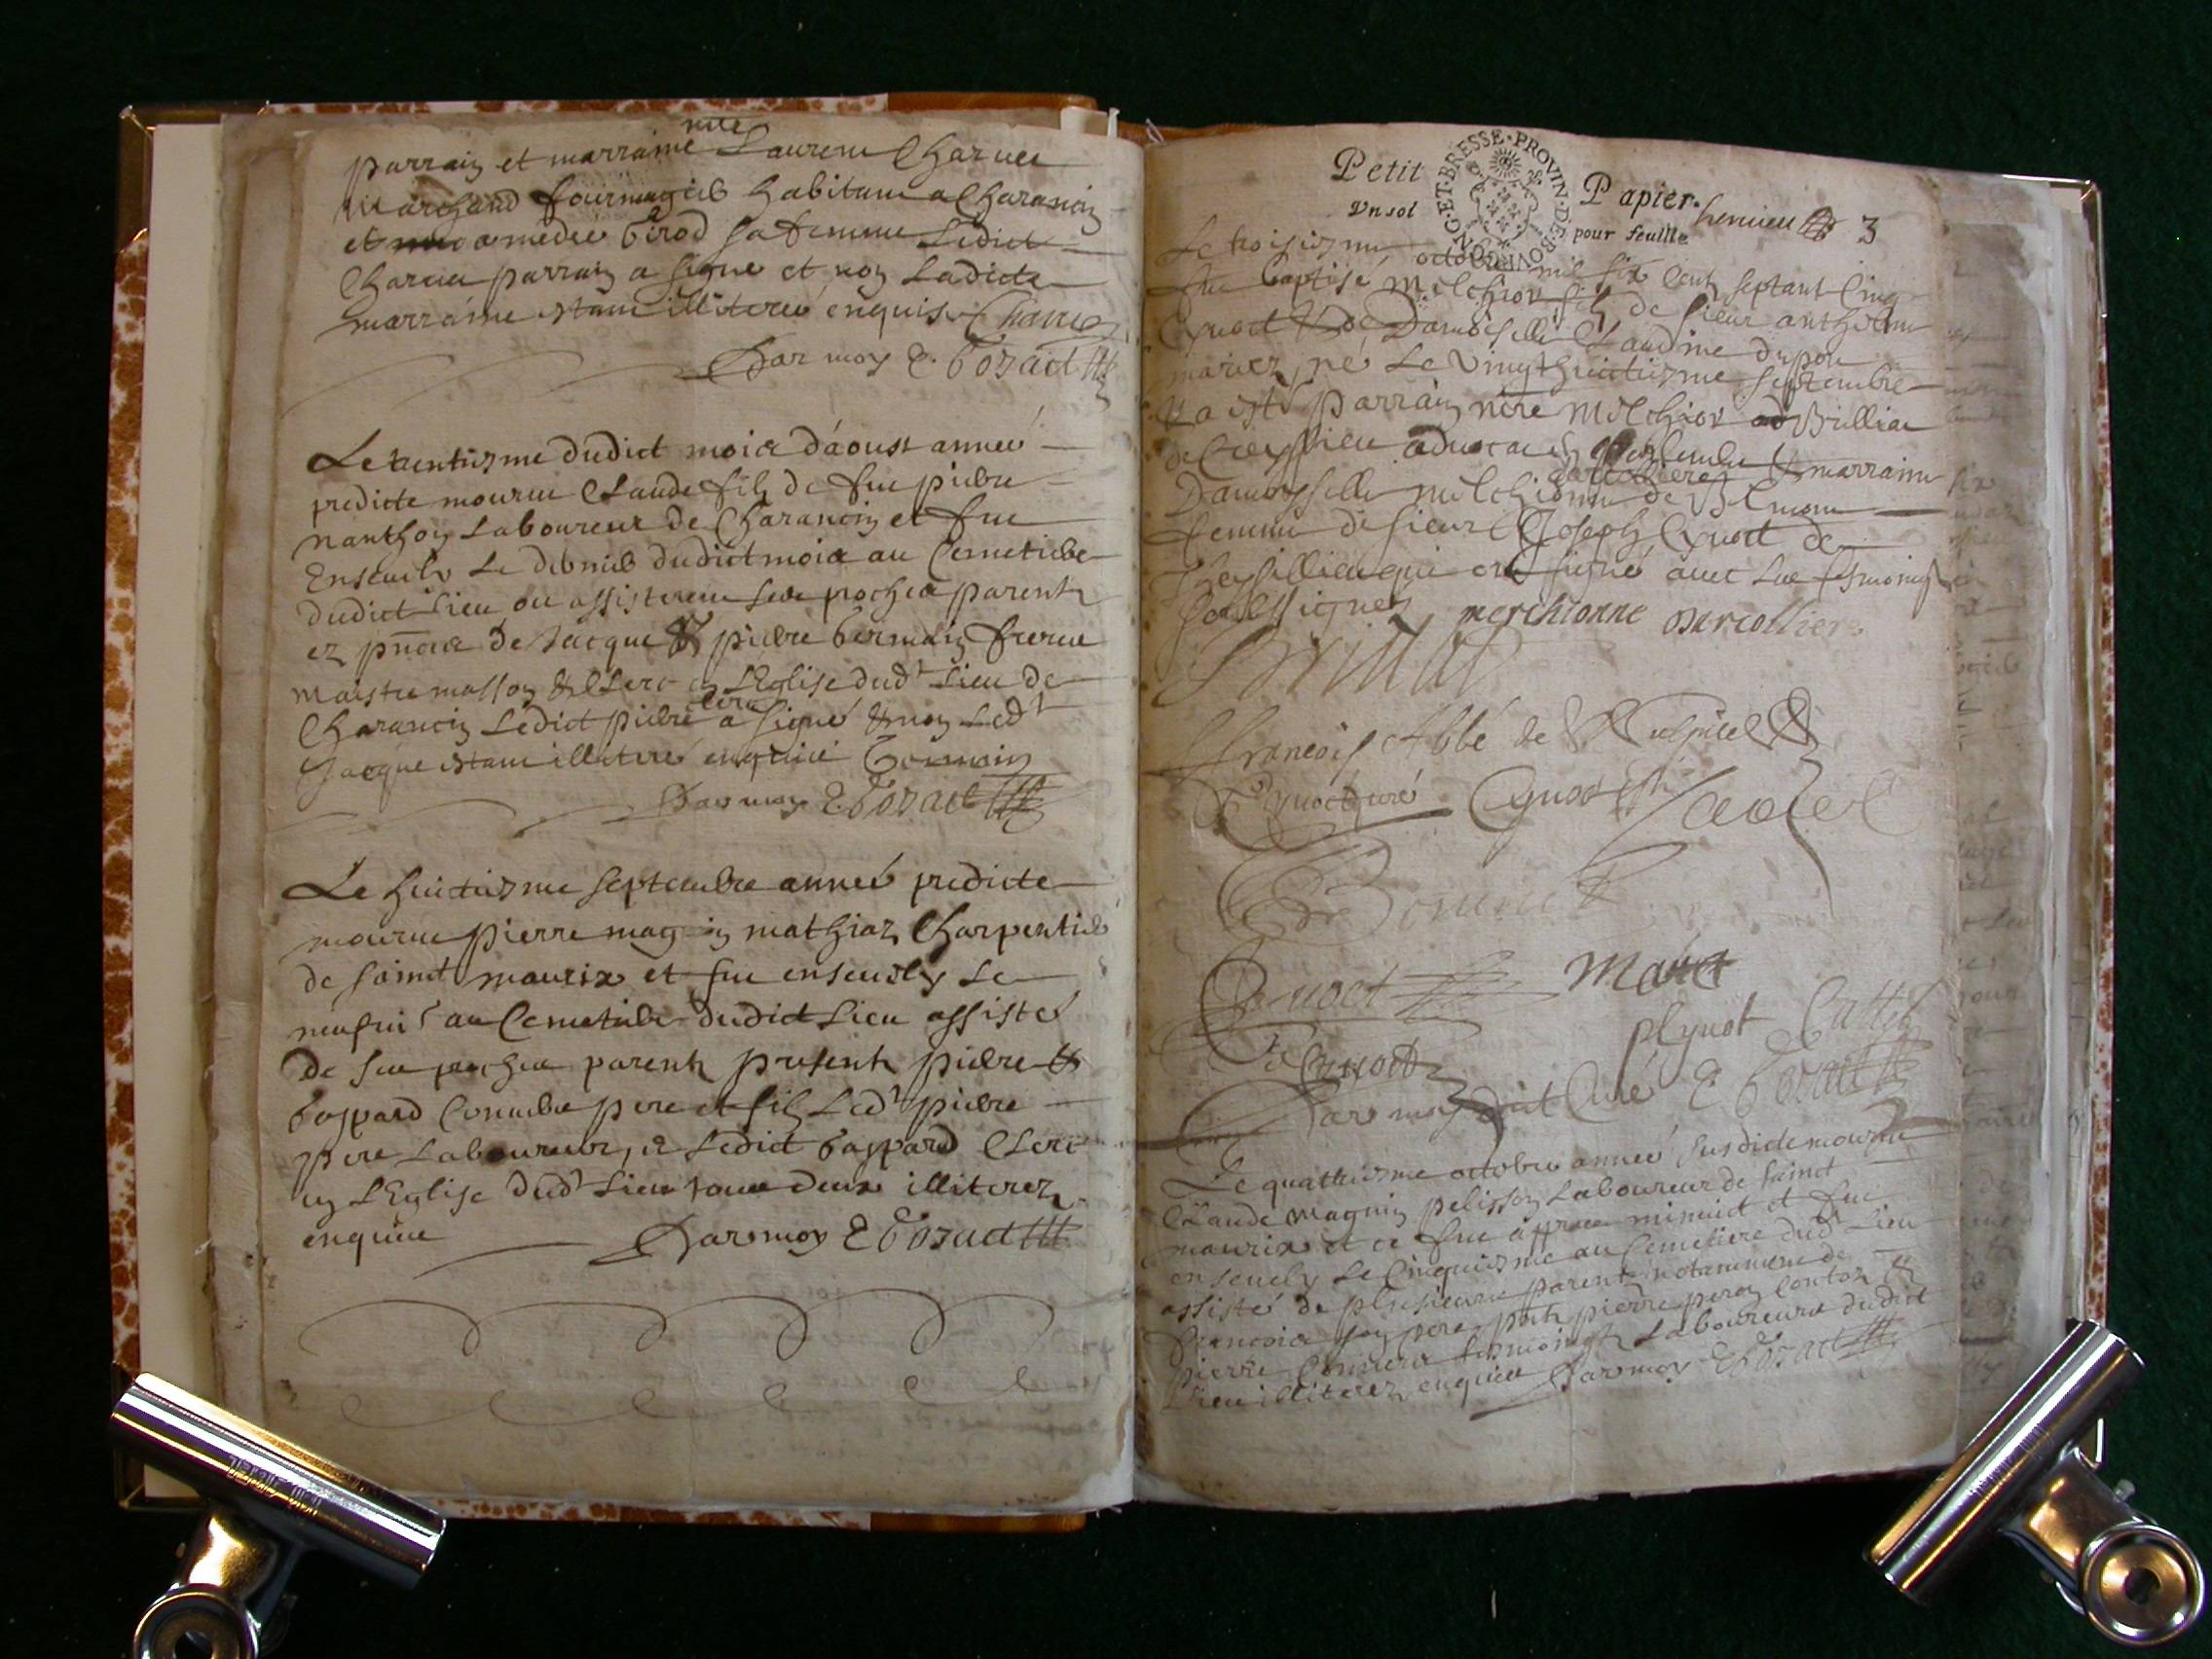 parrain et marraine mre Laurent Charuet
Marchand fourmagier habitant a Charancin
et amedee Girod sa femme Ledict
Charuet parrain a signé et non Ladicte
marraine estant illiteree enquise Charuet
Par moy E. Gozact
Le trentiesme dudict mois d'aoust anneé
predicte mourut Claude filz de feu pierre
nanthon Laboureur de Charancin et fut
Ensevely Le dernier dudict mois au Cemetiere
dudict Lieu ou assisterent ses proches parentz
ez pnces de Jacque & pierre Germain freres
maistre masson & Clerc en L'Eglise dudt Lieu de
Charancin Ledict pierre clerc a signé & non Ledt
Jacque estant illiteré enquis Germain
Par moy E. Gozact
Le huictiesme septembre anneé predicte
mourut pierre magnin mathiaz Charpentier
de sainct maurix et fut ensevely Le
neufvie au Cemetiere dudict Lieu assisté
de ses proches parentz presentz pierre &
Gaspard Connubie pere et filz Ledt pierre
pere Laboureur, & Ledict Gaspard Clerc
en L'Eglise dudt Lieu tous deux illiterez
enquis Par moy E Gozact
Petit Papier.
Vn sol pour feuille
BOVRGONG·ET·BRESSE·PROVIN·DE
3
Le troisiesme octobre mil six Cent septant Cinq
fut baptisé Melchior filz de sieur anthelme
Cynoct & de Damoiselle Claudine dupon
mariez, né Le vingthuictiesme septembre
Il a esté parrain mre Melchior Brilliat
de Ceyssieu advocat en Parlement & marraine
Damoyselle melchionne darcollieres de
femme de sieur Joseph Cynoct de
qui ont signé avec Les tesmoins
soussignez merchionne darcolliere
Brillat
François Abbé de
Cynoct curé Cynoct
Cynoct Maret
plynot Cattet
Cynoct
Par moy dict Curé E Gozact
Le quattriesme octobre anneé susdicte mourut
Claude magnin pelisson Laboureur de sainct
maurix et ce fut apprés minuict et fut
ensevely Le Cinquiesme au Cemetiere dudt Lieu
assisté de plusieurs parentz notamment de
François son pere pntz pierre peron Contoz &
pierre tesmoingtz Laboureurs dudict
Lieu illiterez enquis Par moy E Gozact